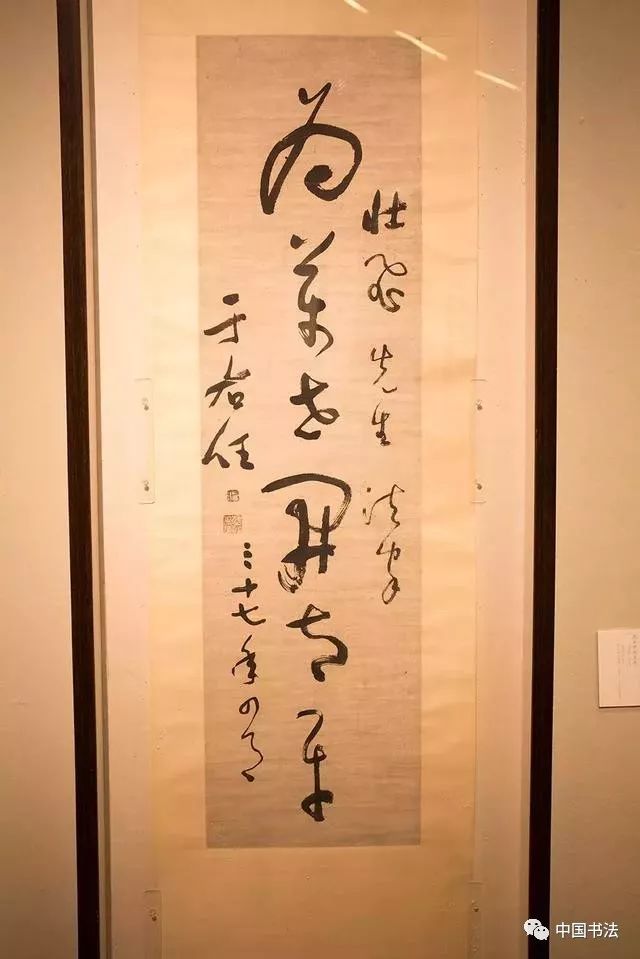 壯飛先生法家
為萬世開太平
于右任
三十七年四月
中国书法